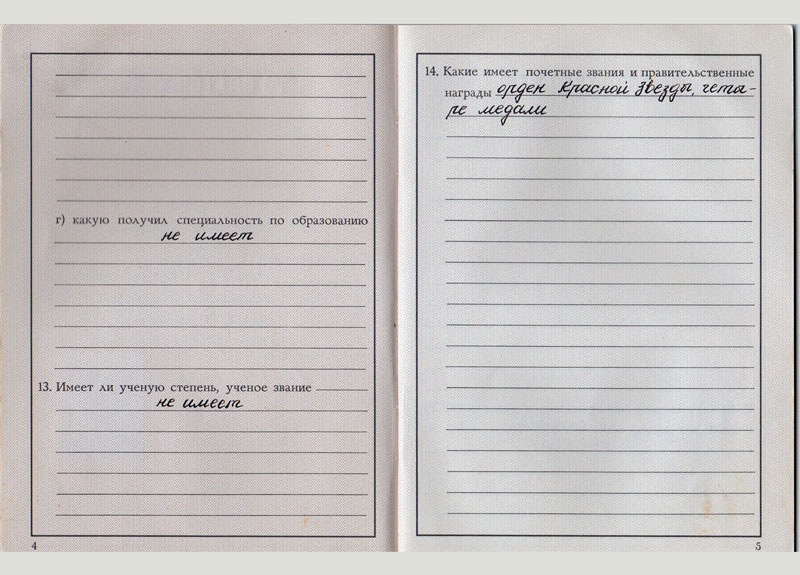 г) какую получил специальность по образованию
не имеет
13. Имеет ли ученую степень, ученое звание
не имеет
4
14. Какие имеет почетные звания и правительственные
награды орден Красной Звезды, четы-
ре медали
5